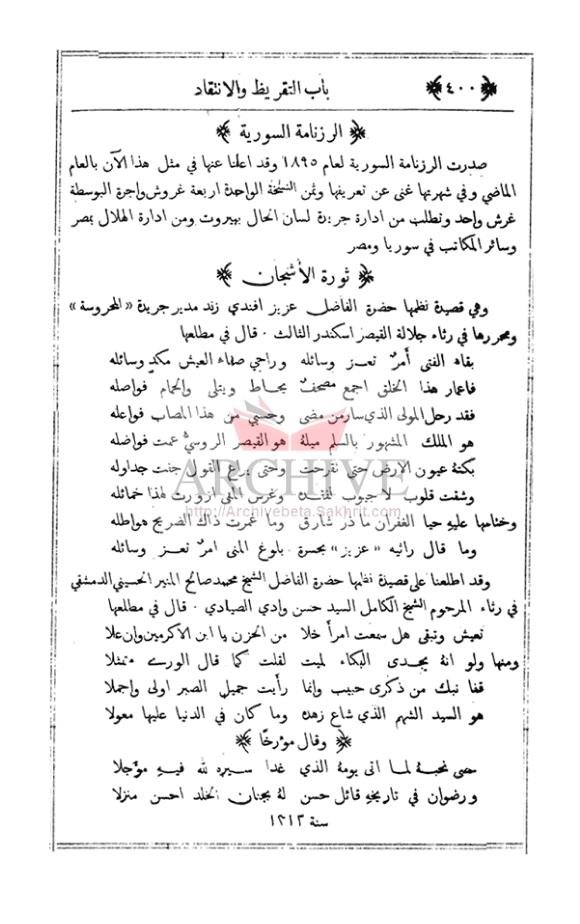 ﴿٤٠٠﴾ باب التقريظ والانتقاد
﴿ الرزنامة السورية ﴾
صدرت الرزنامة السورية لعام ١٨٩٥ وقد اعلنا عنها في مثل هذا الآن بالعام
الماضي وفي شهرتها غنى عن تعريفها وثمن النسخة الواحدة اربعة غروش واجرة البوسطة
غرش واحد وتطلب من ادارة جريدة لسان الحال ببيروت ومن ادارة الهلال بمصر
وسائر المكاتب في سوريا ومصر
﴿ ثورة الأشجان ﴾
وهي قصيدة نظمها حضرة الفاضل عزيز افندي زند مدير جريدة «المحروسة»
ومحررها في رثاء جلالة القيصر اسكندر الثالث . قال في مطلعها
بقاء الفتى أمرٌ تعز وسائله وراجي صفاء العيش مكدٍ وسائله
فاعمار هذا الخلق اجمع مصحفٌ يحاط ويتلى والحمام فواصله
فقد رحل المولى الذي سار من مضى وحسبي من هذا المصاب فواعله
هو الملك المشهور بالسلم ميله هو القيصر الروسيُّ عمت فواضله
بكته عيون الارض حتى تقرحت وحتى يراع القول جفت جداوله
وشقت قلوب لا جيوب لفقده وغرس المنى ازورت لهذا خمائله
وختامها عليه حيا الغفران ما ذر شارق وما غمرت ذاك الضريح هواطله
وما قال راثيه «عزيز» بحسرة بلوغ المنى امرٌ تعز وسائله
وقد اطلعنا على قصيدة نظمها حضرة الفاضل الشيخ محمد صالح المنير الحسيني الدمشقي
في رثاء المرحوم الشيخ الكامل السيد حسن وادي الصيادي . قال في مطلعها
تعيش وتبقى هل سمعت امرأً خلا من الحزن يا ابن الاكرمين وان علا
ومنها ولو انهُ يجدى البكاء لميت لقلت كما قال الورى متمثلا
قفا نبك من ذكرى حبيب وانما رأيت جميل الصبر اولى واجملا
هو السيد الشهم الذي شاع زهده وما كان في الدنيا عليها معولا
﴿ وقال مؤرخًا ﴾
نحبهُ لما اتى يومهُ الذي غدا سيره لله فيهِ مؤجلا
ورضوان في تاريخهِ قائل حسن لهُ بجنان الخلد احسن منزلا
سنة ١٣١٢
ARCHIVE
http://Archivebeta.Sakhrit.com